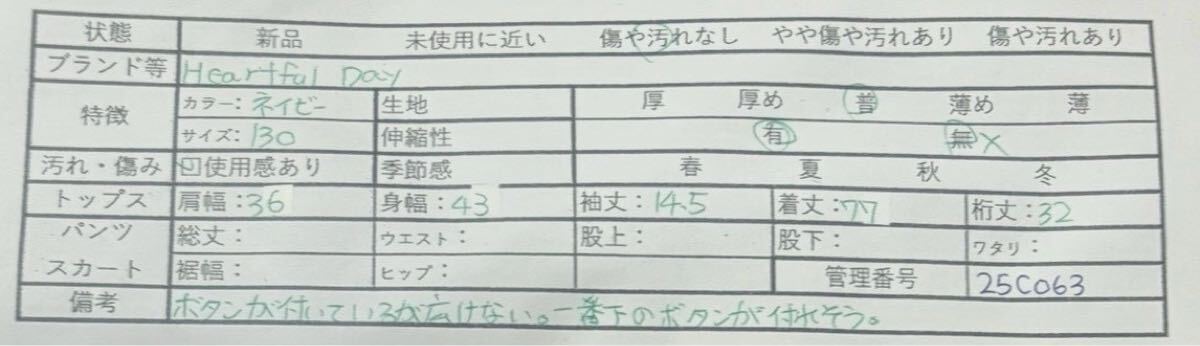 状態 新品 未使用に近い 傷や汚れなし やや傷や汚れあり 傷や汚れあり
ブランド等 Heartful Day
特徴 カラー：ネイビー 生地 厚 厚め 普 薄め 薄
サイズ：130 伸縮性 有 無×
汚れ・傷み 使用感あり 季節感 春 夏 秋 冬
トップス 肩幅：36 身幅：43 袖丈：14.5 着丈：77 裄丈：32
パンツ 総丈： ウエスト： 股上： 股下： ワタリ：
スカート 裾幅： ヒップ： 管理番号 25C063
備考 ボタンが付いているが広けない。一番下のボタンが付れそう。